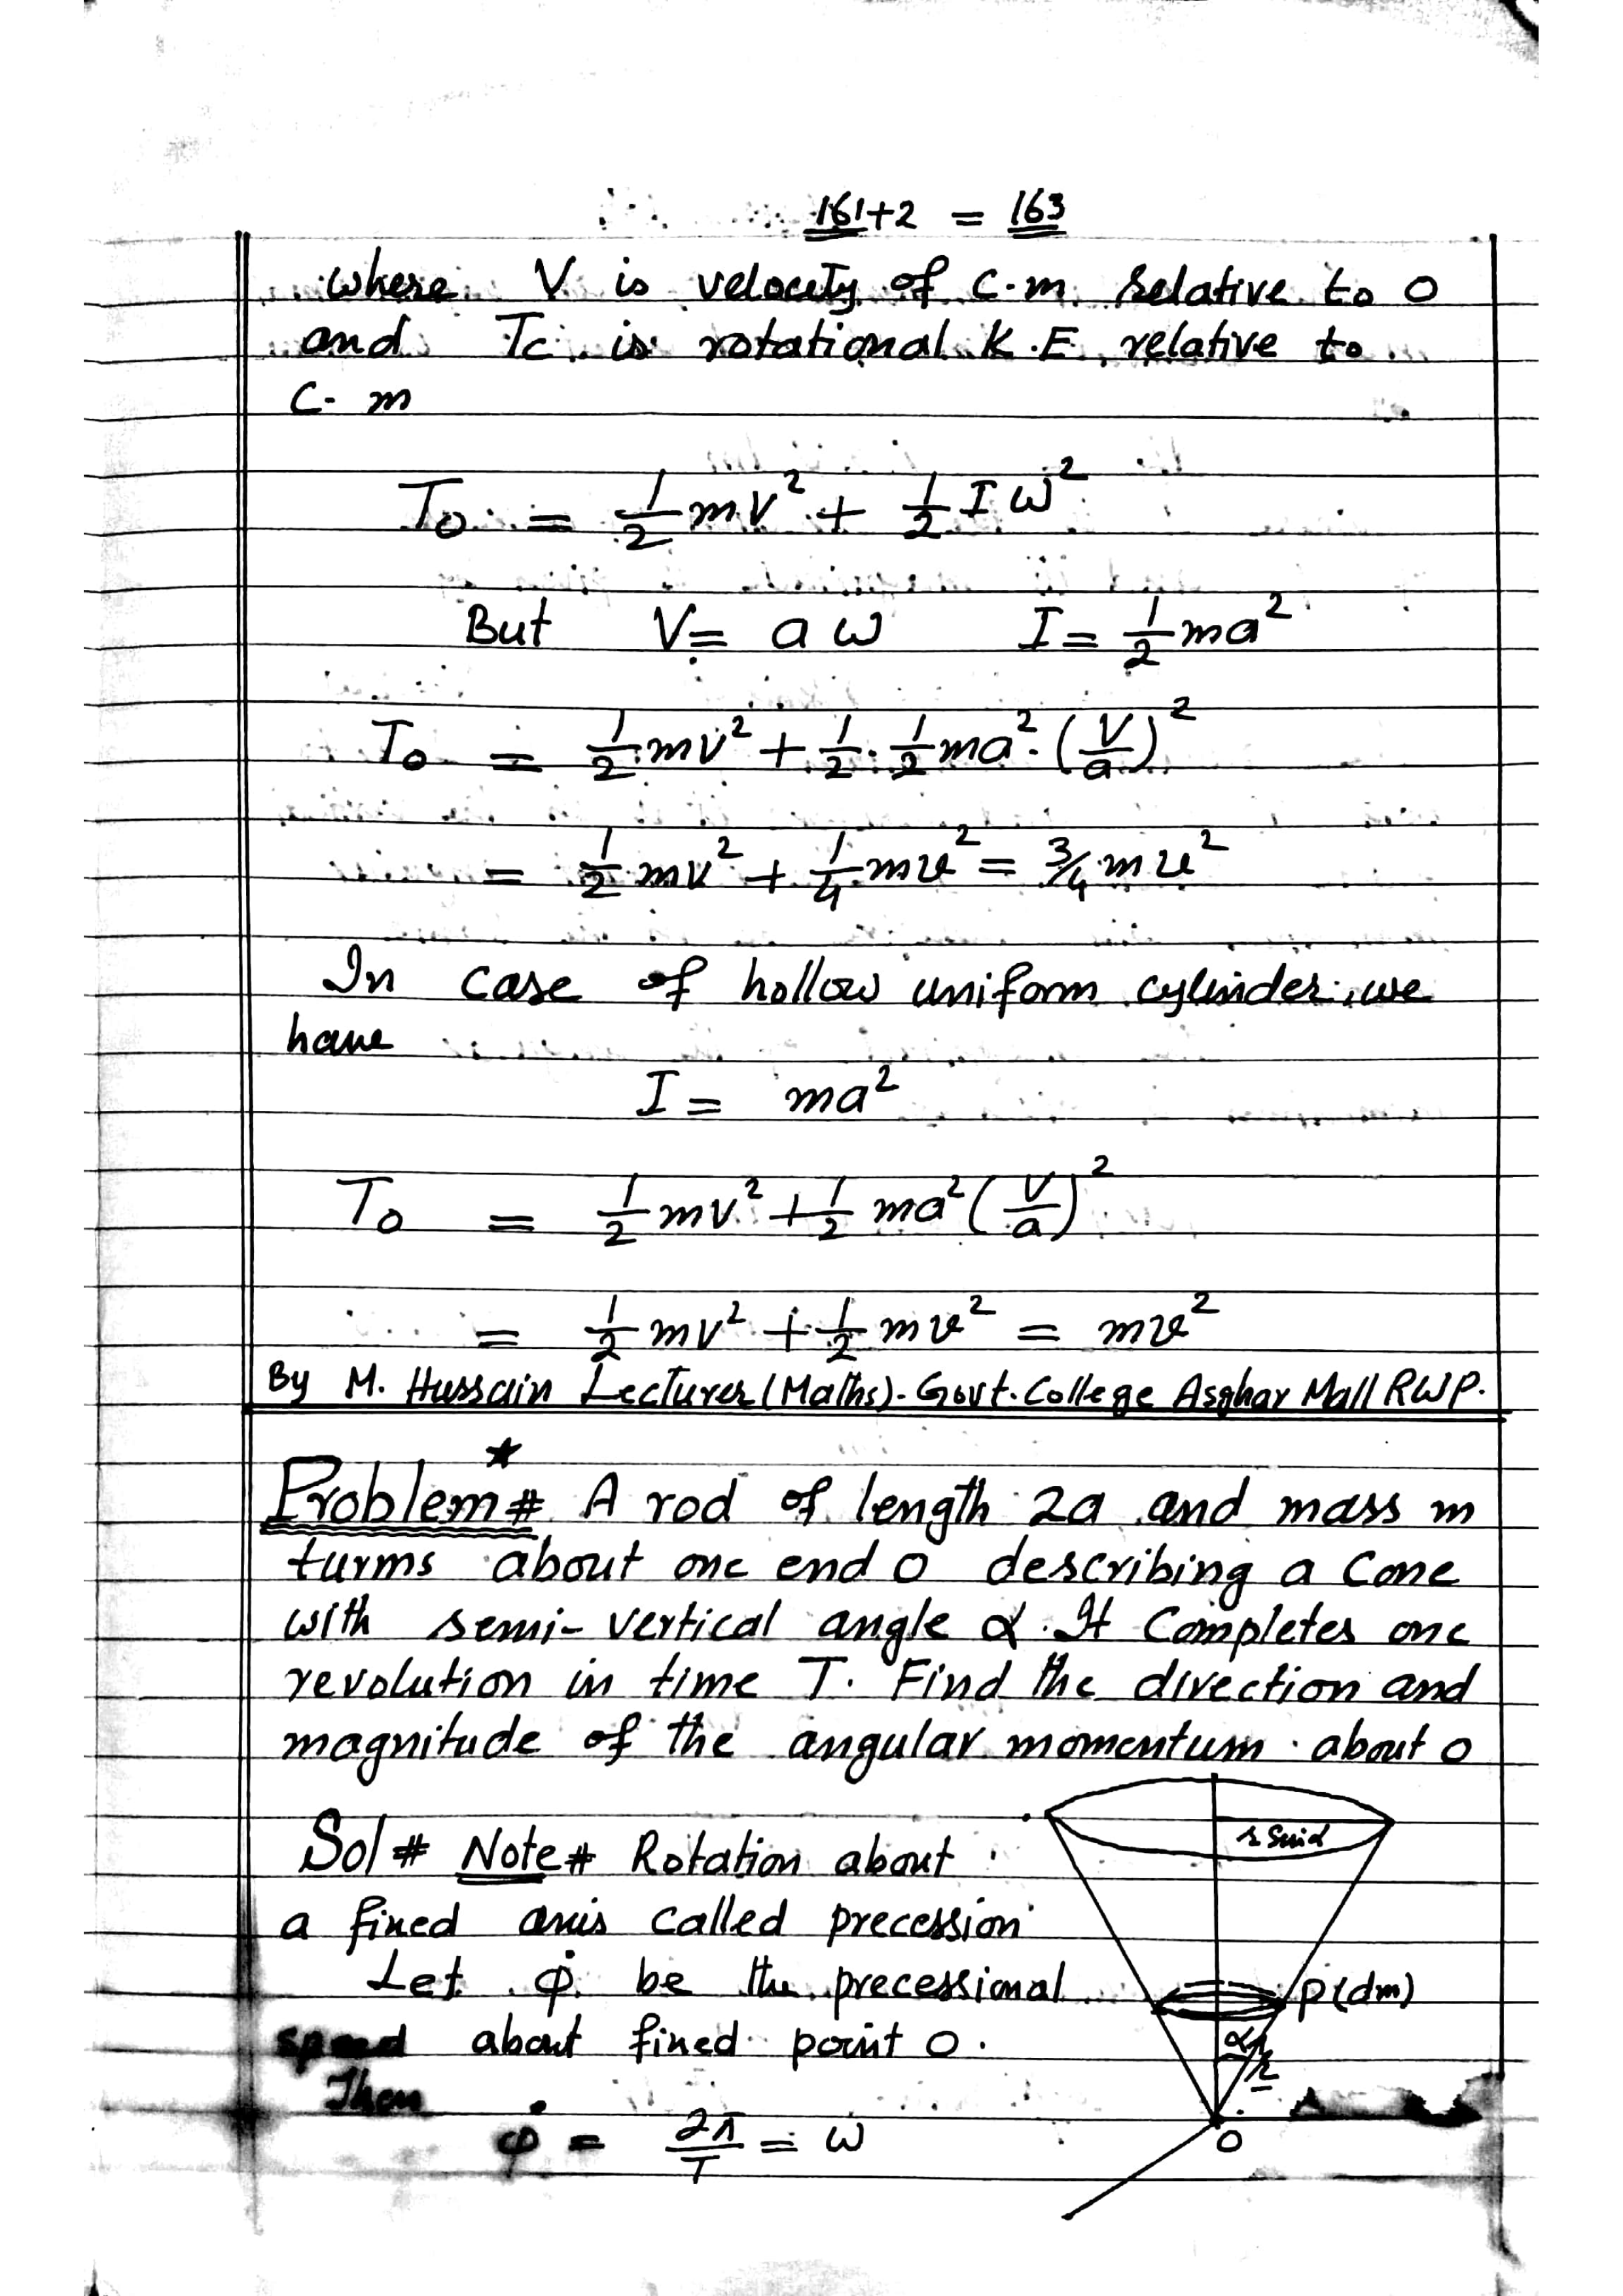 161+2 = 163
where V is velocity of C.m relative to O
and Tc is rotational K.E relative to
C-m
To = 1/2 mv² + 1/2 I ω²
But V = a ω I = 1/2 ma²
To = 1/2 mv² + 1/2 · 1/2 ma² · (V/a)²
= 1/2 mv² + 1/4 mv² = 3/4 mv²
In case of hollow uniform cylinder, we
have
I = ma²
To = 1/2 mv² + 1/2 ma² (V/a)²
= 1/2 mv² + 1/2 mv² = mv²
By M. Hussain Lecturer (Maths). Govt. College Asghar Mall RWP.
Problem# * A rod of length 2a and mass m
turms about one end O describing a Cone
with semi-vertical angle α. It Completes one
revolution in time T. Find the direction and
magnitude of the angular momentum about O
r Sinα
Sol# Note# Rotation about
a fixed axis called precession
Let φ̇ be the precessional
P(dm)
speed about fixed point O.
α r
Then
φ̇ = 2π/T = ω
O